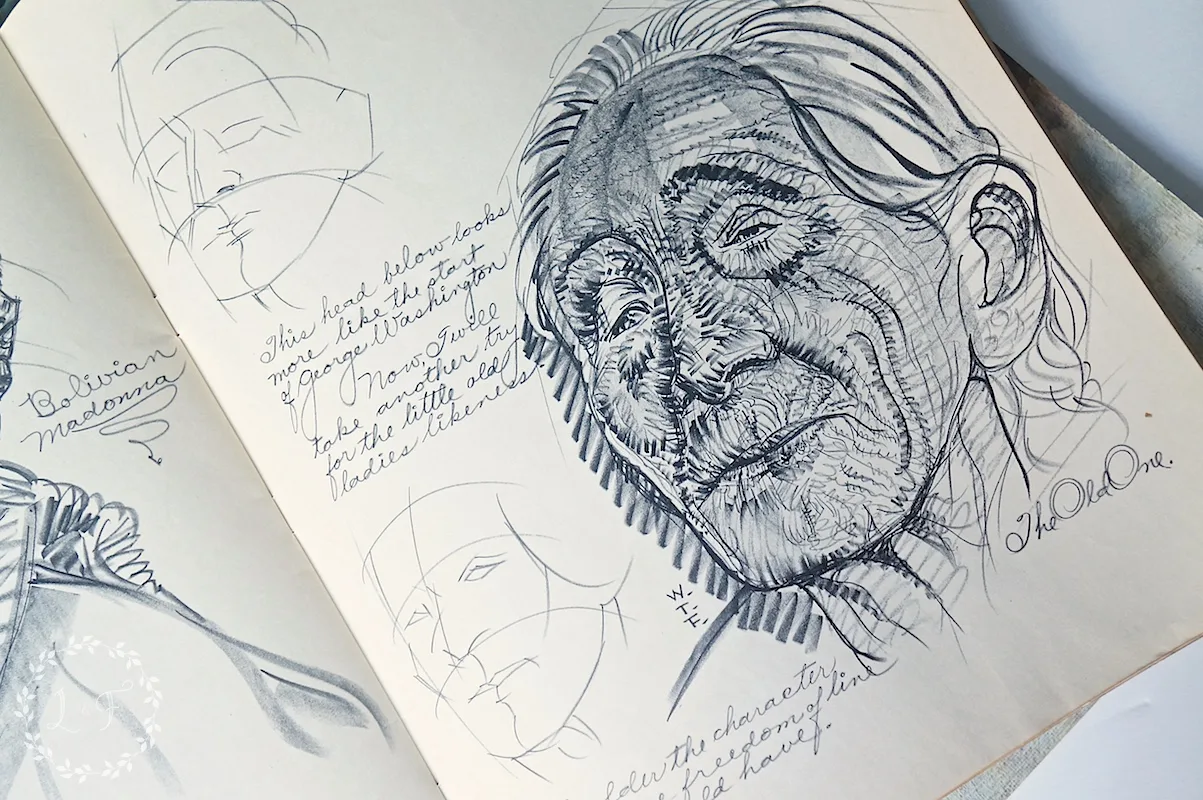 Bolivian
Madonna
This head below looks
more like the start
of George Washington
Now I will
take another try
for the little old
ladies likeness.
The Old One.
W.
T.
F.
the character
freedom of line
have.
L F